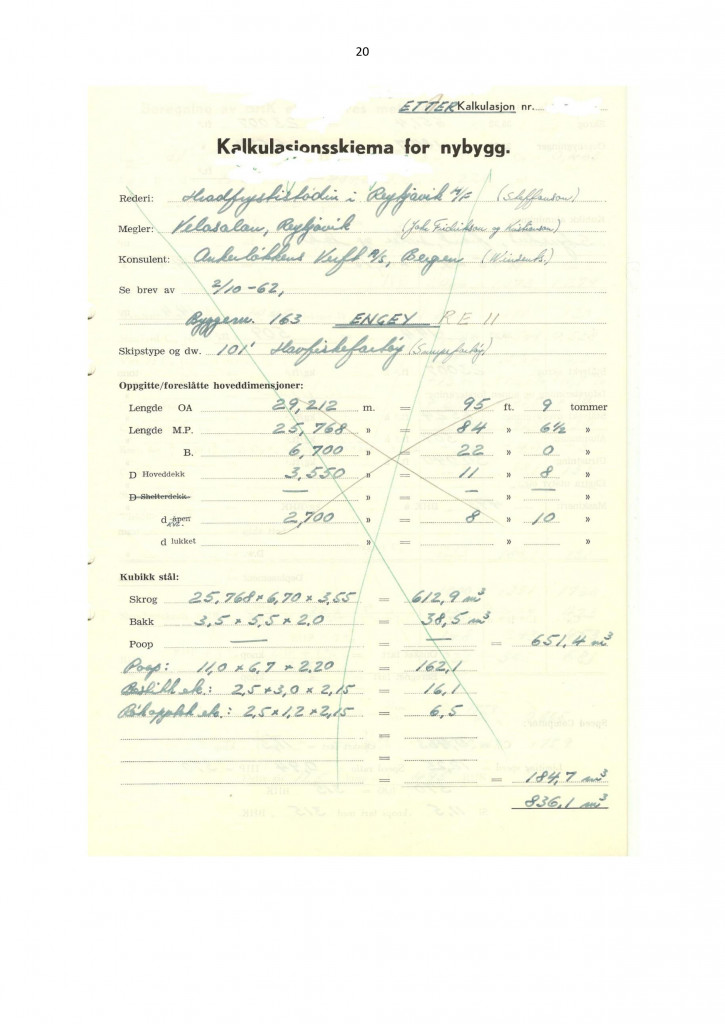 20
ETTER Kalkulasjon nr.
Kalkulasjonsskjema for nybygg.
Rederi: Hradfrystistödin i Reykjavik H/F (Steffanson)
Megler: Velasalan, Reykjavik (Joh. Fridrikson og Kristinson)
Konsulent: Ankerløkkens Verft A/S, Bergen
Se brev av 2/10-62,
Byggenr. 163 ENGEY RE 11
Skipstype og dw. 101' Havfiskefartøy
Oppgitte/foreslåtte hoveddimensjoner:
Lengde OA 29,212 m. = 95 ft. 9 tommer
Lengde M.P. 25,768 » = 84 » 6½ »
B. 6,700 » = 22 » 0 »
D Hoveddekk 3,550 » = 11 » 8 »
D Shelterdekk — » = — » — »
d åpen 2,700 » = 8 » 10 »
d lukket » = » »
Kubikk stål:
Skrog 25,768 × 6,70 × 3,55 = 612,9 m³
Bakk 3,5 × 5,5 × 2,0 = 38,5 m³
Poop — = — = 651,4 m³
Poop: 11,0 × 6,7 × 2,20 = 162,1
2,5 × 3,0 × 2,15 = 16,1
2,5 × 1,2 × 2,15 = 6,5
=
=
= = 184,7 m³
836,1 m³